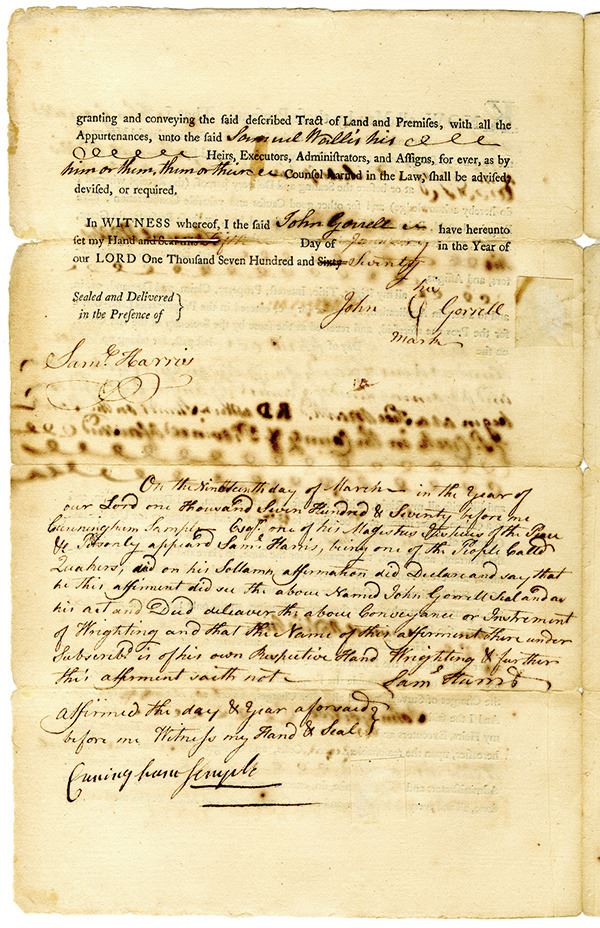 granting and conveying the said described Tract of Land and Premises, with all the
Appurtenances, unto the said Samuel Wallis his
Heirs, Executors, Administrators, and Assigns, for ever, as by
him or them, them or their Counsel learned in the Law, shall be advised,
devised, or required.
In WITNESS whereof, I the said John Gorrell have hereunto
set my Hand and Seal this Day of January in the Year of
our LORD One Thousand Seven Hundred and Sixty Seventy
Sealed and Delivered
in the Presence of
his
John Gorrell
mark
Saml. Harris
On the Nineteenth day of March in the Year of
our Lord one thousand Seven Hundred & Seventy before me
Cunningham Semple Esqr. one of his Magistus Justices of the Peace
& Personly appeard Saml. Harris, being one of the People Called
Quakers, and on his Sollamn affirmation did Declare and say that
he this affirment did see the above Named John Gorrell Seal and as
his act and Deed deliaver the above Conveyance or Instrement
of Wrighting and that the Name of this affirment there under
Subscribd is of his own Respective Hand Wrighting & further
this affirment saith not Saml Harris
affirmed the day & Year aforsaid
before me Witness my Hand & Seal
Cuningham Semple